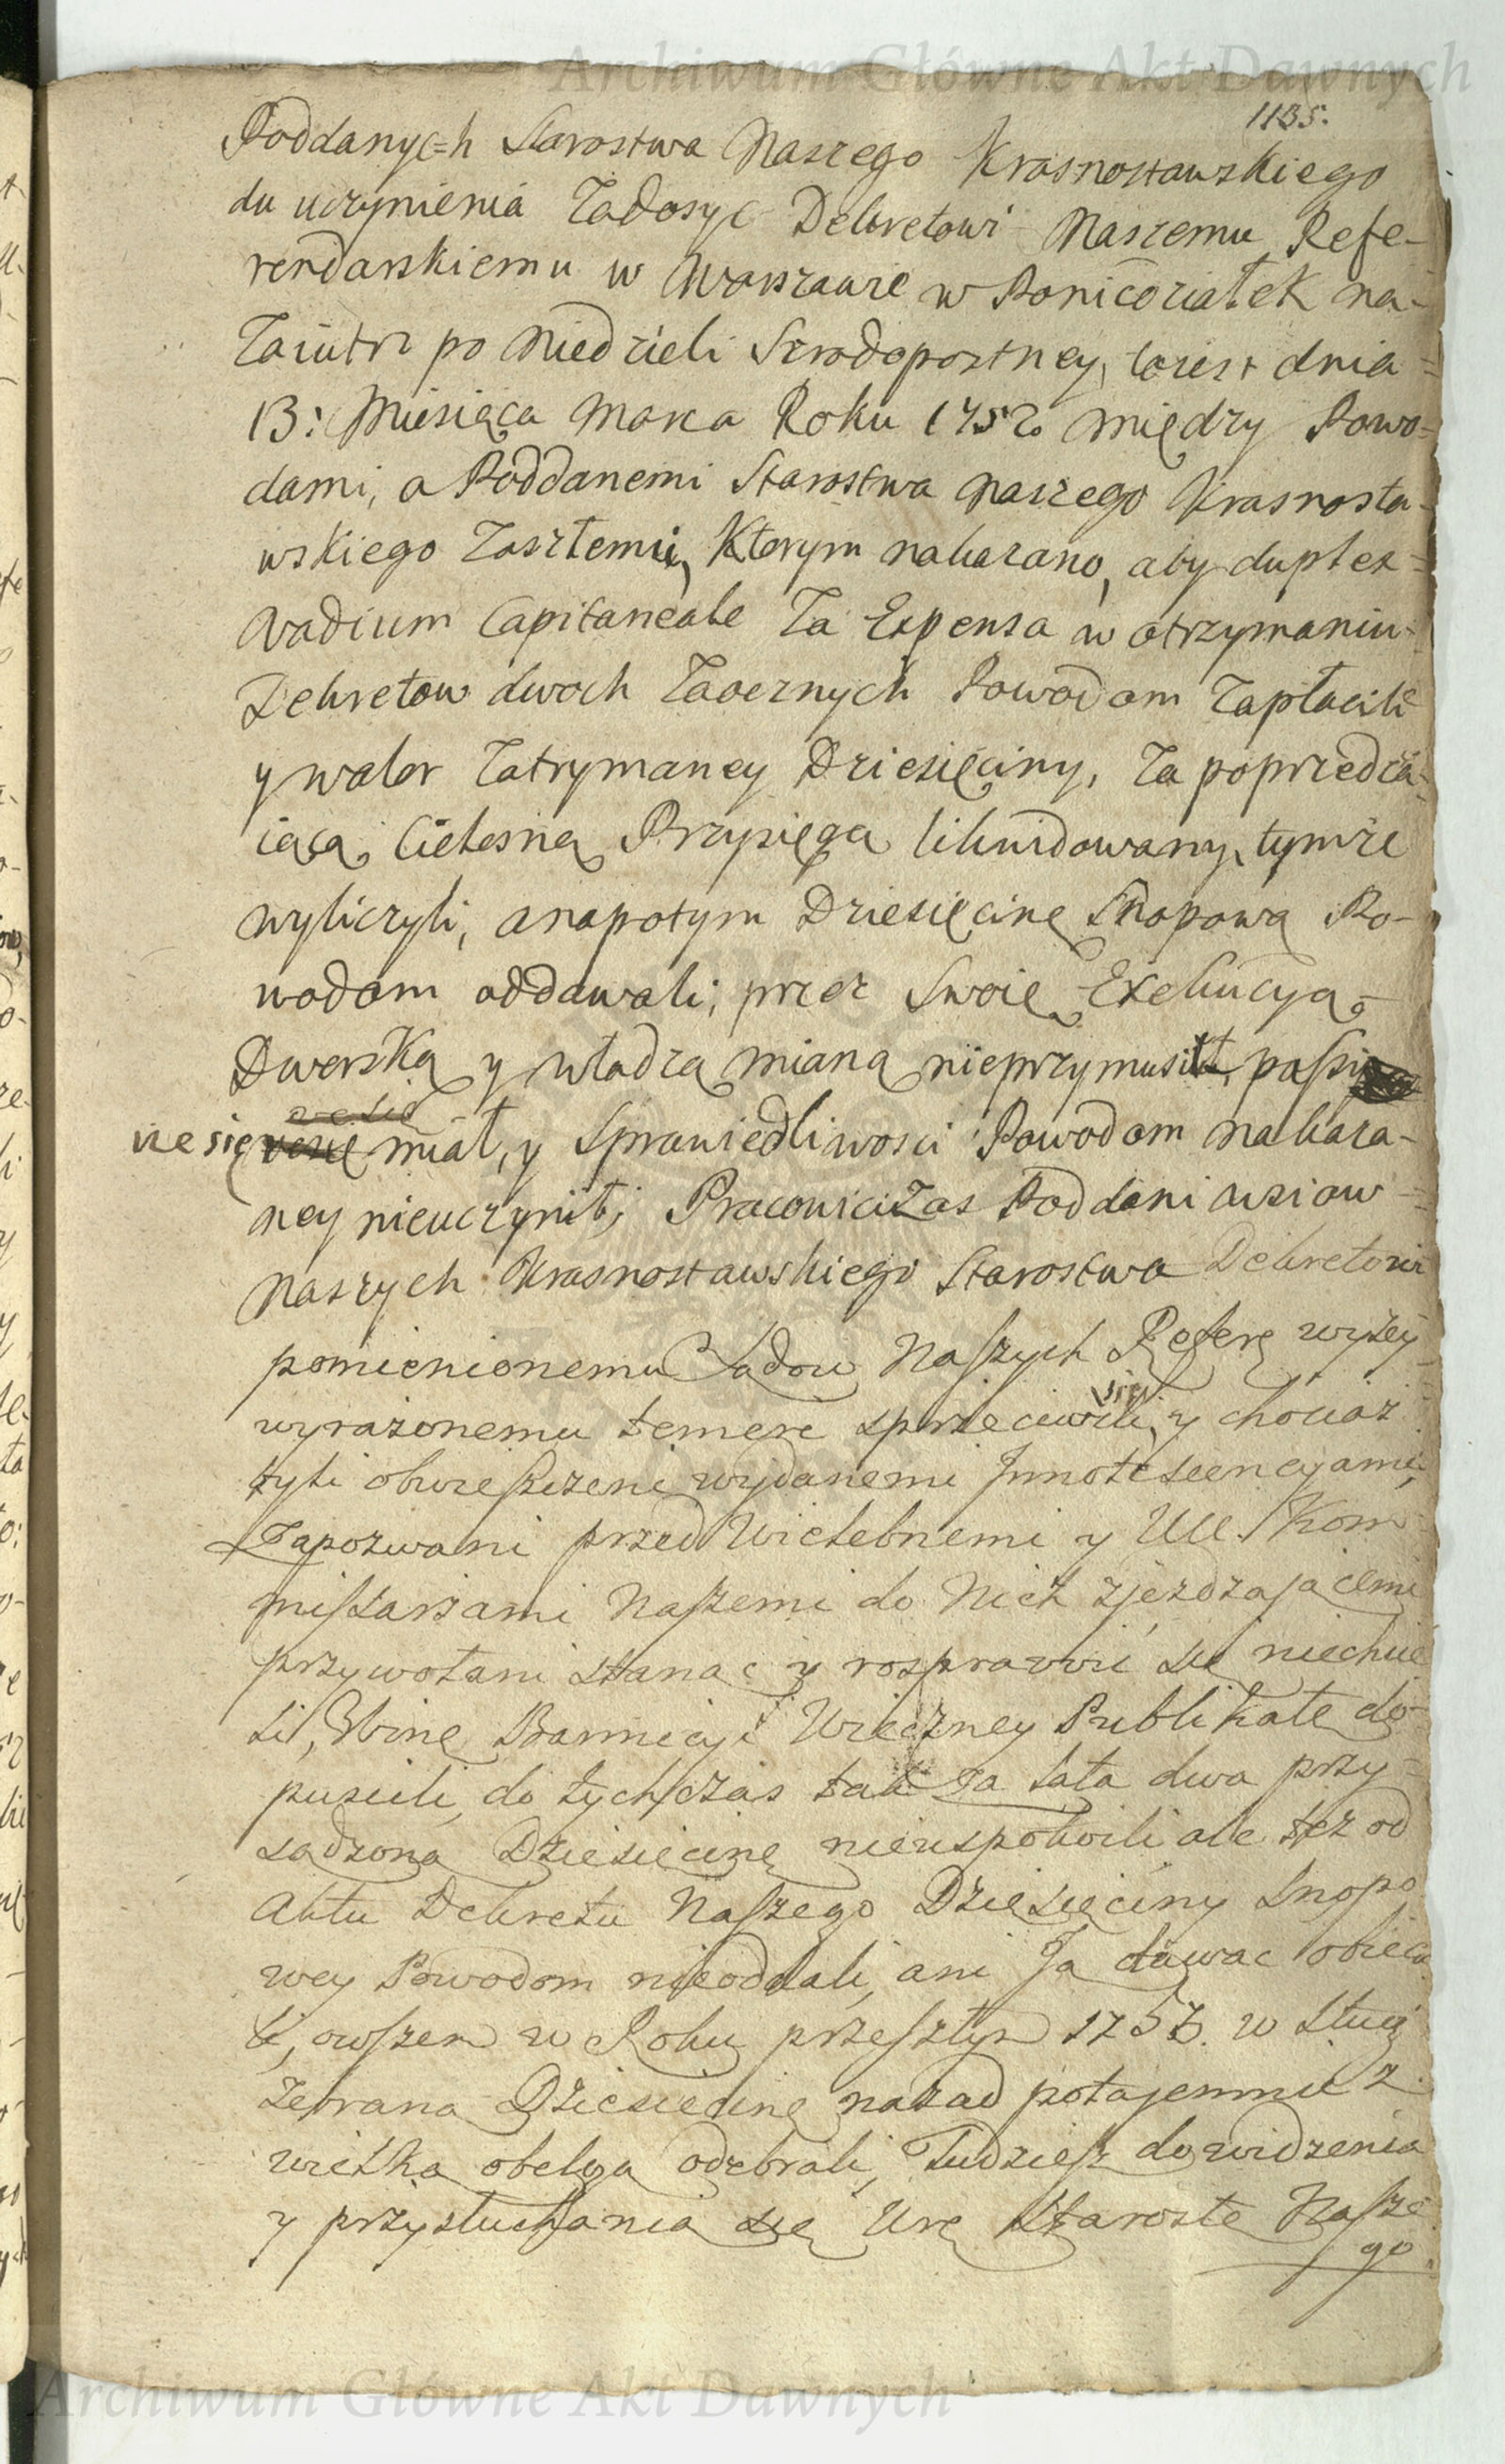 Archiwum Główne Akt Dawnych
1135.
Poddanych Starostwa Naszego Krasnostawskiego
du uczynienia Zadosyc Dekretowi Naszemu Refe-
rendarskiemu w Warszawie w Poniedziałek na-
Zaiutrz po Niedzieli Szrodopostney, toiest dnia
13: Miesiąca Marca Roku 1752 między Powo-
dami, a Poddanemi Starostwa naszego Krasnosta-
wskiego Zaszłemu, Ktorym nakazano, aby duplex
Vadium Capitaneale Za Expensa w otrzymaniu
Dekretow dwoch Zaocznych Powodom Zapłacili
y walor Zatrymaney Dziesięciny, Za poprzedza-
iącą Cielesną Przysięgą likwidowany, tymże
wyliczyli, anapotym Dziesięcinę Snopową Po-
wodom oddawali; przez Swoię Exekucyą
Dworską y władzą mianą nieprzymusił, passi
nie się miał, y Sprawiedliwosci Powodom nakaza-
ney nieuczynił; Pracowici Zas Poddani wsiow
Naszych Krasnostawskiego Starostwa Dekretowi
pomienionemu Sądow Naszych Refere wyżey
wyrażonemu temere sprzeciwili się, y chociaż
byli obwieszczeni wydanemi Innotescencyami,
Zapozwani przed Wielebnemi y Ull. Kom
missarzami Naszemi do Nich zjezdzającemi
przywołani stanąc y rosprawić się niechcie
li, Winę Bannicyi Wieczney Publikatę do-
puscili, do tychczas tak za lata dwa przy-
sądzoną Dziesięcinę nieuspokoili ale też od
Aktu Dekretu Naszego Dziesięciny Snopo
wey Powodom nieoddali, ani Ją dawac obieca
li, owszem w Roku przeszłym 1757. w
zebraną Dziesięcinę nazad potajemnie z
wielką obelgą odebrali, Tudziesz do widzenia
y przysłuchania się Urę Starostę Nasze
go
Archiwum Główne Akt Dawnych